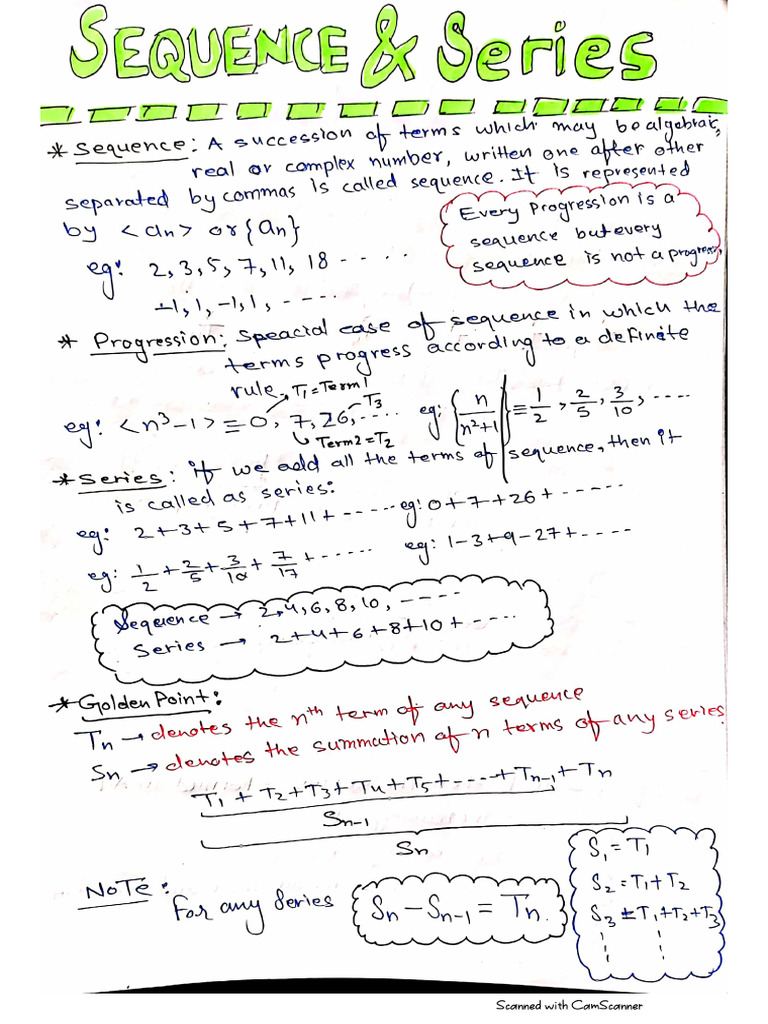 SEQUENCE & Series
* Sequence: A succession of terms which may be algebraic,
real or complex number, written one after other
separated by commas is called sequence. It is represented
by <an> or {an}
Every Progression is a
sequence but every
sequence is not a progress.
eg: 2, 3, 5, 7, 11, 18 - - - -
-1, 1, -1, 1, - - - -
* Progression: Speacial case of sequence in which the
terms progress according to a definite
rule.
T1 = Term 1
T3
eg: <n³-1> = 0, 7, 26, - - - -
Term 2 = T2
eg: {n/n²+1} = 1/2, 2/5, 3/10, - - - -
* Series: if we add all the terms of sequence, then it
is called as series:
eg: 2+3+5+7+11+ - - - - -
eg: 0+7+26+ - - - - -
eg: 1/2 + 2/5 + 3/10 + 7/17 + - - - - -
eg: 1-3+9-27+ - - - -
Sequence → 2, 4, 6, 8, 10, - - - -
Series → 2+4+6+8+10+ - - - -
* Golden Point:
Tn → denotes the nth term of any sequence
Sn → denotes the summation of n terms of any series.
T1 + T2 + T3 + T4 + T5 + - - - - + Tn-1 + Tn
Sn-1
Sn
NOTE:
For any Series
Sn - Sn-1 = Tn.
S1 = T1
S2 = T1+T2
S3 = T1+T2+T3
Scanned with CamScanner